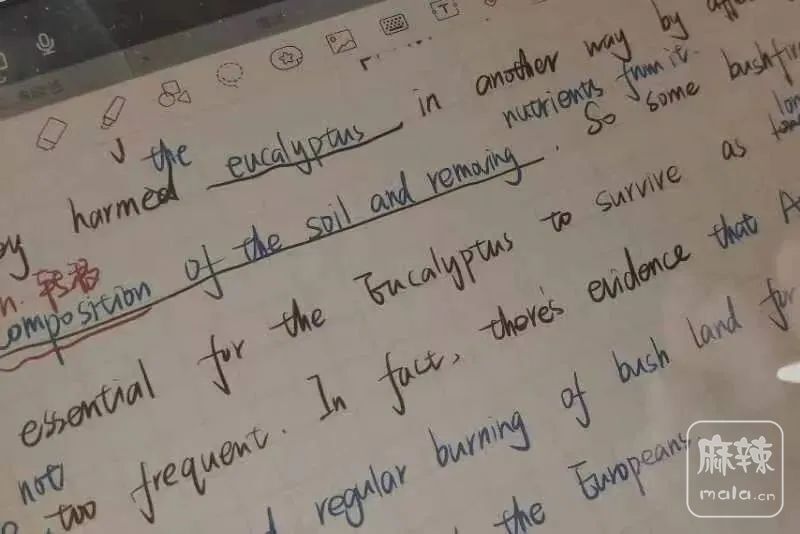 the in another way by
harmed eucalyptus nutrients from it.
composition of the soil and removing. So some bushfire
essential for the Eucalyptus to survive as long
not too frequent. In fact, there's evidence that
regular burning of bush land for
the Europeans
麻辣
mala.cn